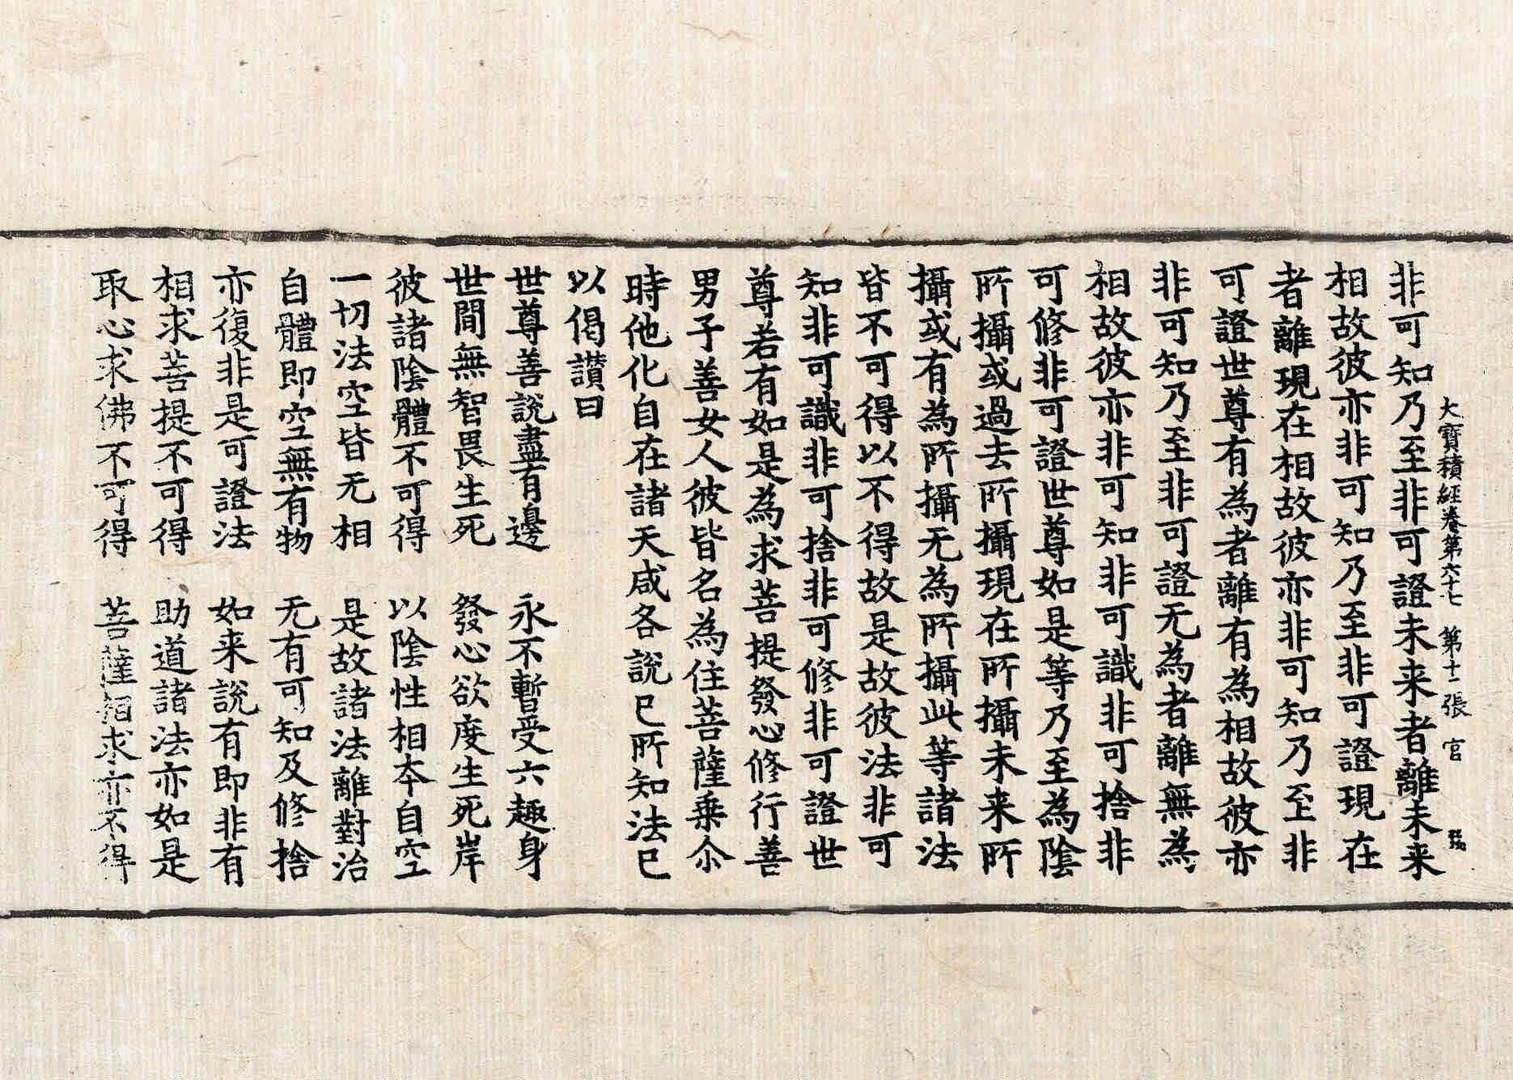 大寶積經卷第六十七　第十一張　官
非可知乃至非可證未来者離未来
相故彼亦非可知乃至非可證現在
者離現在相故彼亦非可知乃至非
可證世尊有為者離有為相故彼亦
非可知乃至非可證无為者離無為
相故彼亦非可知非可識非可捨非
可修非可證世尊如是等乃至為陰
所攝或過去所攝現在所攝未来所
攝或有為所攝无為所攝此等諸法
皆不可得以不得故是故彼法非可
知非可識非可捨非可修非可證世
尊若有如是為求菩提發心修行善
男子善女人彼皆名為住菩薩乗尒
時他化自在諸天咸各說已所知法已
以偈讚曰
世尊善說盡有邊　永不暫受六趣身
世間無智畏生死　發心欲度生死岸
彼諸陰體不可得　以陰性相夲自空
一切法空皆无相　是故諸法離對治
自體即空無有物　无有可知及修捨
亦復非是可證法　如来說有即非有
相求菩提不可得　助道諸法亦如是
取心求佛不可得　菩薩相求亦不得